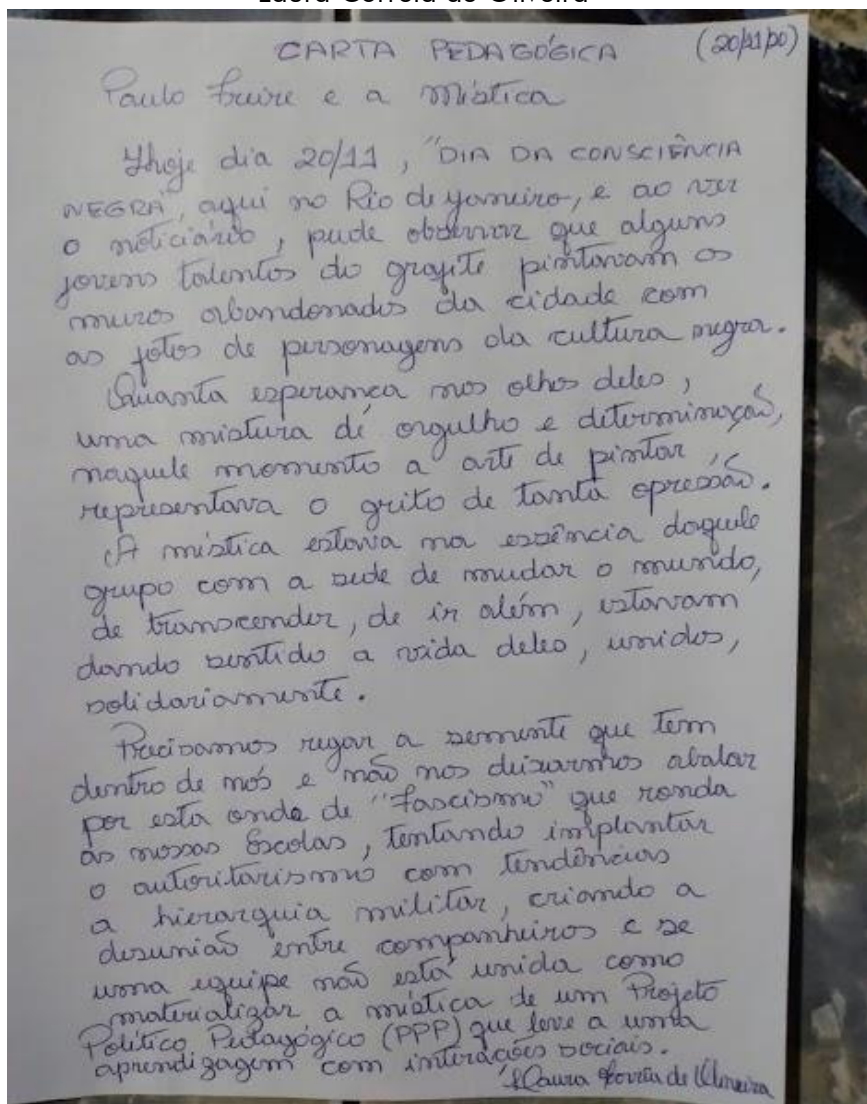 Laura Correia de Oliveira
CARTA PEDAGÓGICA (20/11/20)
Paulo Freire e a Mística
Hoje dia 20/11, "DIA DA CONSCIÊNCIA
NEGRA", aqui no Rio de Janeiro, e ao ver
o noticiário, pude observar que alguns
jovens talentos do grafite pintavam os
muros abandonados da cidade com
as fotos de personagens da cultura negra.
Quanta esperança nos olhos deles,
uma mistura de orgulho e determinação,
naquele momento a arte de pintar,
representava o grito de tanta opressão.
A mística estava na essência daquele
grupo com a sede de mudar o mundo,
de transcender, de ir além, estavam
dando sentido a vida deles, unidos,
solidariamente.
Precisamos regar a semente que tem
dentro de nós e não nos deixarmos abalar
por esta onda de "fascismo" que ronda
as nossas Escolas, tentando implantar
o autoritarismo com tendências
a hierarquia militar, criando a
desunião entre companheiros e se
uma equipe não está unida como
materializar a mística de um Projeto
Político Pedagógico (PPP) que leve a uma
aprendizagem com interações sociais.
Laura Correia de Oliveira